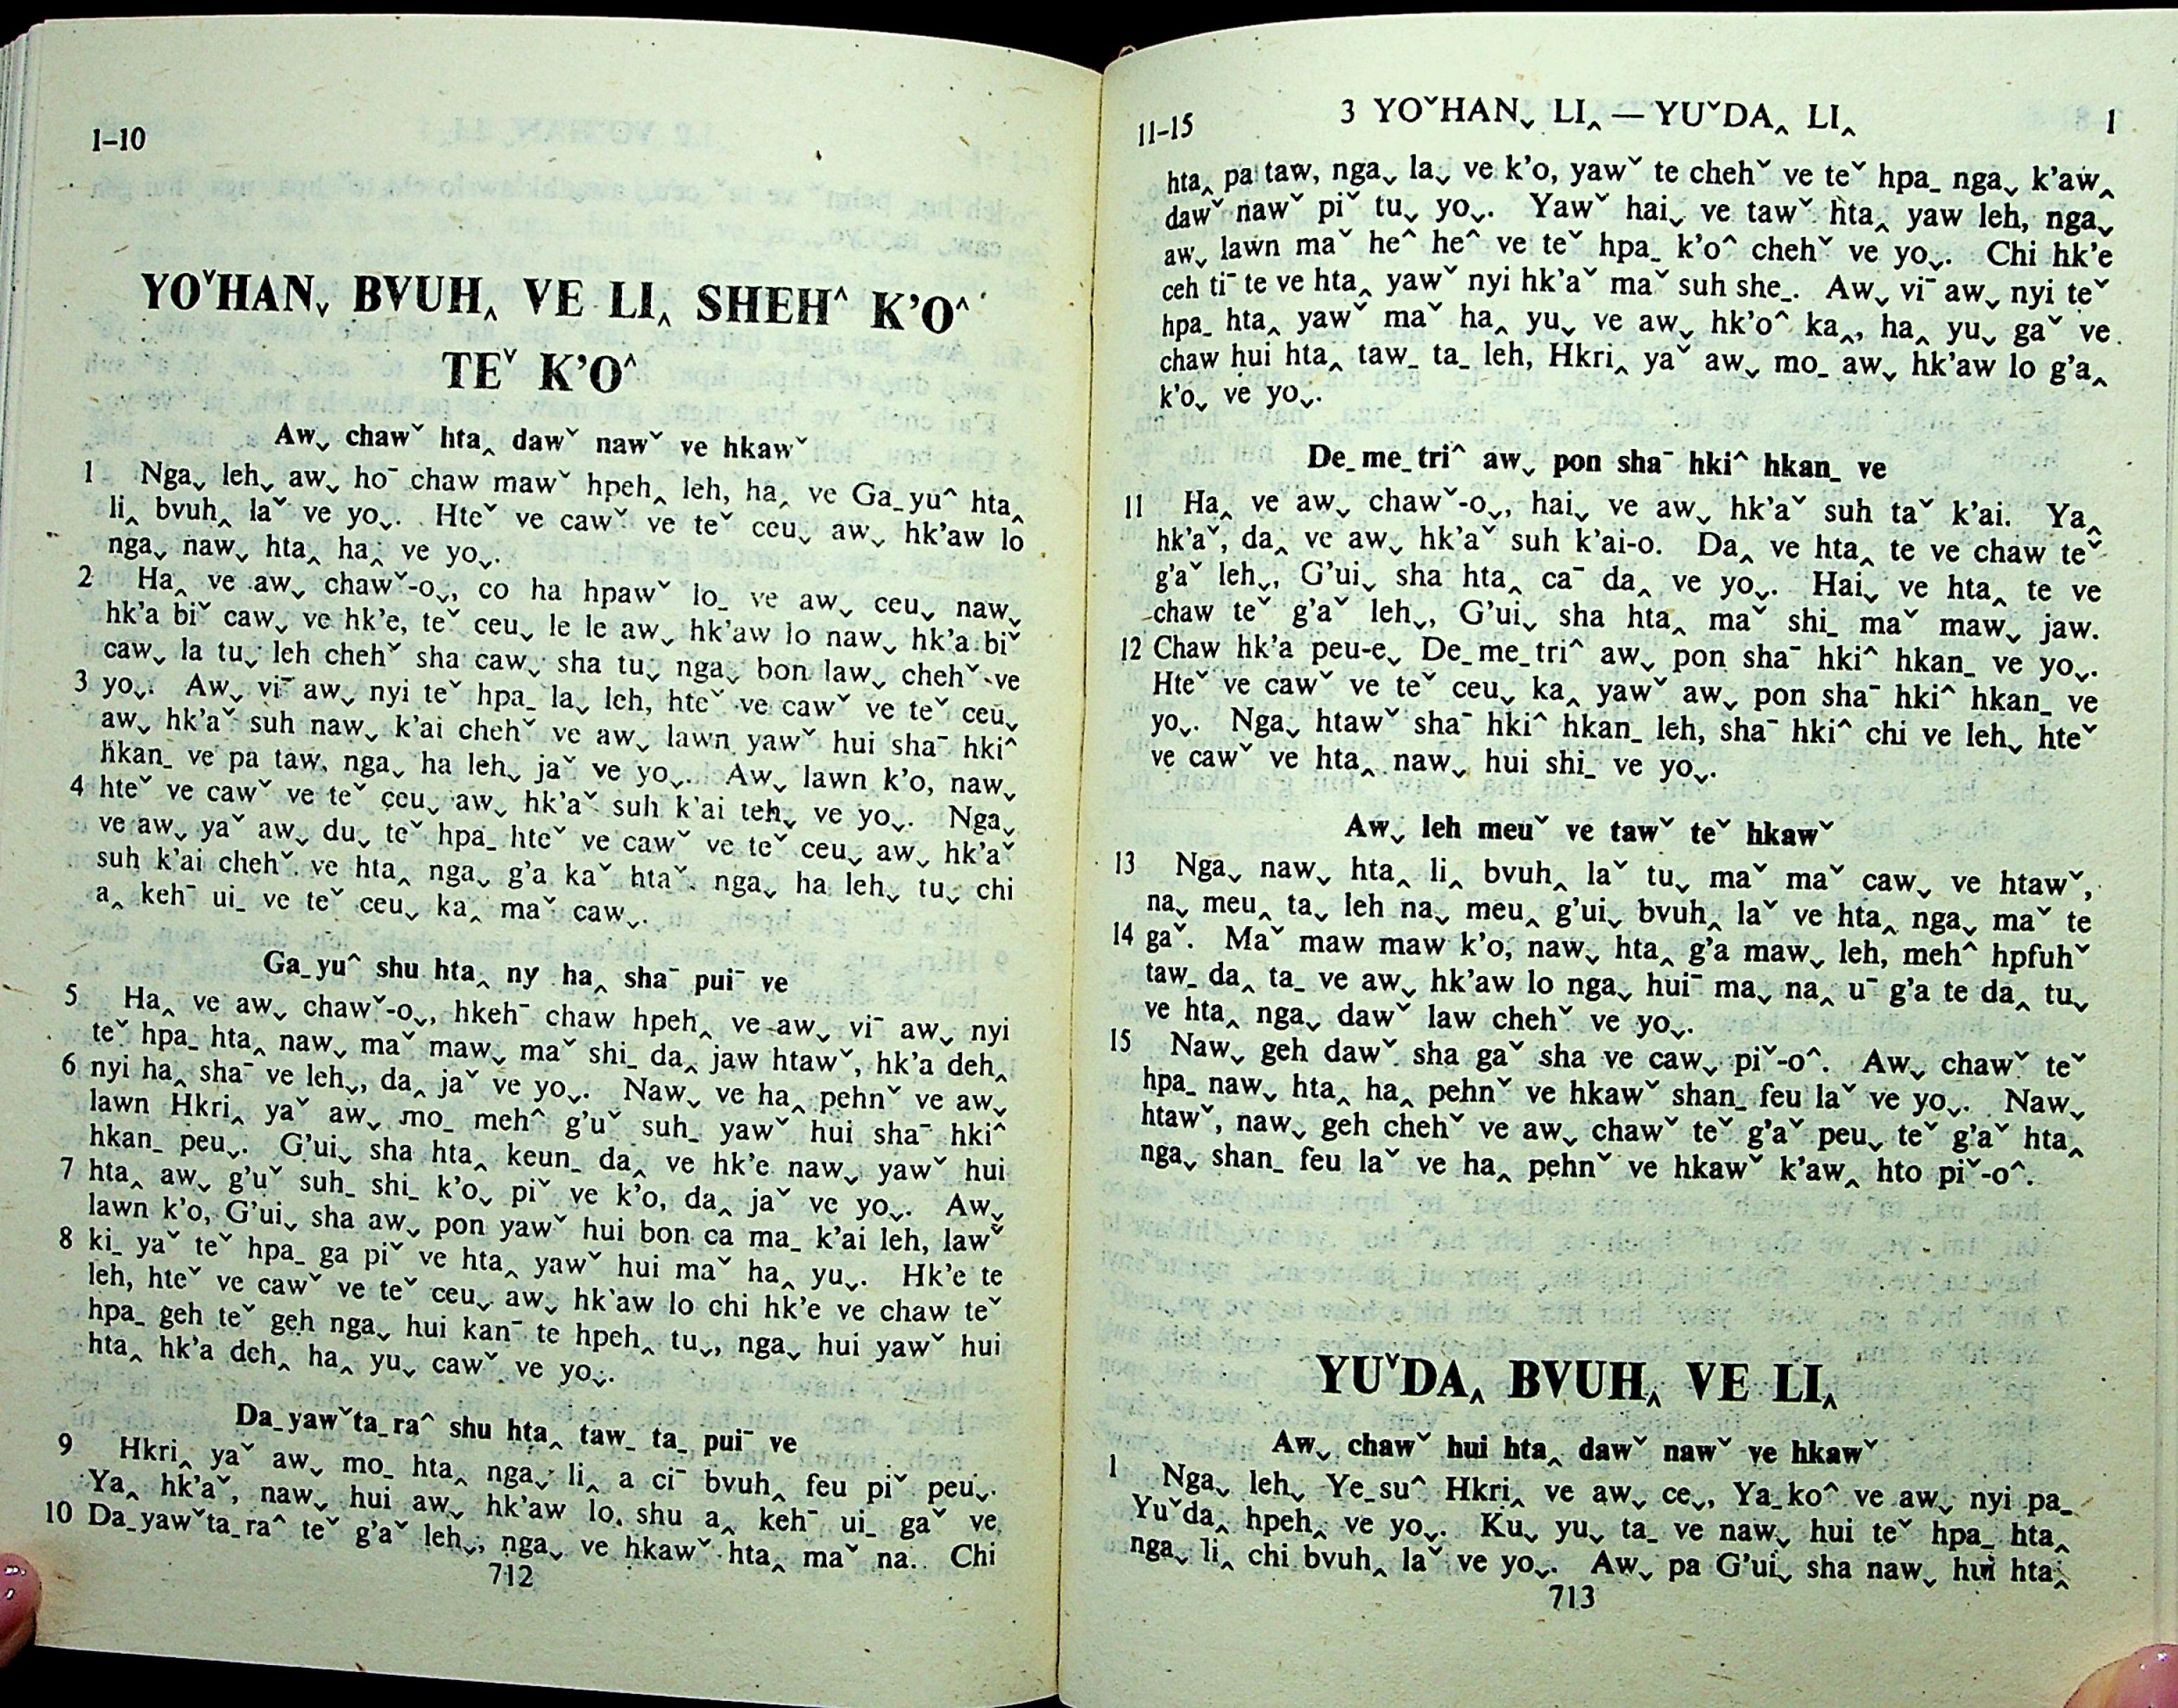 1–10
YOˇHANˬ BVUHꞈ VE LIꞈ SHEH^ K’O^
TEˇ K’O^
Awˬ chawˇ htaꞈ dawˇ nawˇ ve hkawˇ
1 Ngaˬ lehˬ awˬ hoˉ chaw mawˇ hpehꞈ leh, haꞈ ve Ga_yu^ htaꞈ
liꞈ bvuhꞈ laˇ ve yoˬ. Hteˇ ve cawˇ ve teˇ ceuˬ awˬ hk’aw lo
ngaˬ nawˬ htaꞈ haꞈ ve yoˬ.
2 Haꞈ ve awˬ chawˇ-oˬ, co ha hpawˇ lo_ ve awˬ ceuˬ nawˬ
hk’a biˇ cawˬ ve hk’e, teˇ ceuˬ le le awˬ hk’aw lo nawˬ hk’a biˇ
cawˬ la tuˬ leh chehˇ sha cawˬ sha tuˬ ngaˬ bon lawˬ chehˇ ve
3 yoˬ. Awˬ viˉ awˬ nyi teˇ hpa_ laˬ leh, hteˇ ve cawˇ ve teˇ ceuˬ
awˬ hk’aˇ suh nawˬ k’ai chehˇ ve awˬ lawn yawˇ hui shaˉ hki^
hkan_ ve pa taw, ngaˬ ha lehˬ jaˇ ve yoˬ. Awˬ lawn k’o, nawˬ
4 hteˇ ve cawˇ ve teˇ ceuˬ awˬ hk’aˇ suh k’ai tehˬ ve yoˬ. Ngaˬ
ve awˬ yaˇ awˬ duˬ teˇ hpa_ hteˇ ve cawˇ ve teˇ ceuˬ awˬ hk’aˇ
suh k’ai chehˇ ve htaꞈ ngaˬ g’a kaˇ htaˇ ngaˬ ha lehˬ tuˬ chi
aꞈ kehˉ ui_ ve teˇ ceuˬ kaꞈ maˇ cawˬ.
Ga_yu^ shu htaꞈ ny haꞈ shaˉ puiˉ ve
5 Haꞈ ve awˬ chawˇ-oˬ, hkehˉ chaw hpehꞈ ve awˬ viˉ awˬ nyi
teˇ hpa_ htaꞈ nawˬ maˇ mawˬ maˇ shi_ daꞈ jaw htawˇ, hk’a dehꞈ
6 nyi haꞈ shaˉ ve lehˬ, daꞈ jaˇ ve yoˬ. Nawˬ ve haꞈ pehnˇ ve awˬ
lawn Hkriꞈ yaˇ awˬ mo_ meh^ g’uˇ suh_ yawˇ hui shaˉ hki^
hkan_ peuˬ. G’uiˬ sha htaꞈ keun_ daꞈ ve hk’e nawˬ yawˇ hui
7 htaꞈ awˬ g’uˇ suh_ shi_ k’oˬ piˇ ve k’o, daꞈ jaˇ ve yoˬ. Awˬ
lawn k’o, G’uiˬ sha awˬ pon yawˇ hui bon ca ma_ k’ai leh, lawˇ
8 ki_ yaˇ teˇ hpa_ ga piˇ ve htaꞈ yawˇ hui maˇ haꞈ yuˬ. Hk’e te
leh, hteˇ ve cawˇ ve teˇ ceuˬ awˬ hk’aw lo chi hk’e ve chaw teˇ
hpa_ geh teˇ geh ngaˬ hui kanˉ te hpehꞈ tuˬ, ngaˬ hui yawˇ hui
htaꞈ hk’a dehꞈ haꞈ yuˬ cawˇ ve yoˬ.
Da_yawˇta_ra^ shu htaꞈ taw_ ta_ puiˉ ve
9 Hkriꞈ yaˇ awˬ mo_ htaꞈ ngaˬ liꞈ a ciˉ bvuhꞈ feu piˇ peuˬ.
Yaꞈ hk’aˇ, nawˬ hui awˬ hk’aw lo, shu aꞈ kehˉ ui_ gaˇ ve
10 Da_yawˇta_ra^ teˇ g’aˇ lehˬ, ngaˬ ve hkawˇ htaꞈ maˇ na. Chi
712
11–15 3 YOˇHANˬ LIꞈ—YUˇDAꞈ LIꞈ 1
htaꞈ pa taw, ngaˬ laˬ ve k’o, yawˇ te chehˇ ve teˇ hpa_ ngaˬ k’awꞈ
dawˇ nawˇ piˇ tuˬ yoˬ. Yawˇ haiˬ ve tawˇ htaꞈ yaw leh, ngaˬ
awˬ lawn maˇ he^ he^ ve teˇ hpa_ k’o^ chehˇ ve yoˬ. Chi hk’e
ceh tiˉ te ve htaꞈ yawˇ nyi hk’aˇ maˇ suh she_. Awˬ viˉ awˬ nyi teˇ
hpa_ htaꞈ yawˇ maˇ haꞈ yuˬ ve awˬ hk’o^ kaꞈ, haꞈ yuˬ gaˇ ve
chaw hui htaꞈ taw_ ta_ leh, Hkriꞈ yaˇ awˬ mo_ awˬ hk’aw lo g’aꞈ
k’oˬ ve yoˬ.
De_me_tri^ awˬ pon shaˉ hki^ hkan_ ve
11 Haꞈ ve awˬ chawˇ-oˬ, haiˬ ve awˬ hk’aˇ suh taˇ k’ai. Yaꞈ
hk’aˇ, daꞈ ve awˬ hk’aˇ suh k’ai-o. Daꞈ ve htaꞈ te ve chaw teˇ
g’aˇ lehˬ, G’uiˬ sha htaꞈ caˉ daꞈ ve yoˬ. Haiˬ ve htaꞈ te ve
chaw teˇ g’aˇ lehˬ, G’uiˬ sha htaꞈ maˇ shi_ maˇ mawˬ jaw.
12 Chaw hk’a peu-eˬ De_me_tri^ awˬ pon shaˉ hki^ hkan_ ve yoˬ.
Hteˇ ve cawˇ ve teˇ ceuˬ kaꞈ yawˇ awˬ pon shaˉ hki^ hkan_ ve
yoˬ. Ngaˬ htawˇ shaˉ hki^ hkan_ leh, shaˉ hki^ chi ve lehˬ hteˇ
ve cawˇ ve htaꞈ nawˬ hui shi_ ve yoˬ.
Awˬ leh meuˇ ve tawˇ teˇ hkawˇ
13 Ngaˬ nawˬ htaꞈ liꞈ bvuhꞈ laˇ tuˬ maˇ maˇ cawˬ ve htawˇ,
naˬ meuꞈ ta_ leh naˬ meuꞈ g’uiˬ bvuhꞈ laˇ ve htaꞈ ngaˬ maˇ te
14 gaˇ. Maˇ maw maw k’o, nawˬ htaꞈ g’a mawˬ leh, meh^ hpfuhˇ
taw_ daꞈ ta_ ve awˬ hk’aw lo ngaˬ huiˉ maˬ naꞈ uˉ g’a te daꞈ tuˬ
ve htaꞈ ngaˬ dawˇ law chehˇ ve yoˬ.
15 Nawˬ geh dawˇ sha gaˇ sha ve cawˬ piˇ-o^. Awˬ chawˇ teˇ
hpa_ nawˬ htaꞈ haꞈ pehnˇ ve hkawˇ shan_ feu laˇ ve yoˬ. Nawˬ
htawˇ, nawˬ geh chehˇ ve awˬ chawˇ teˇ g’aˇ peuˬ teˇ g’aˇ htaꞈ
ngaˬ shan_ feu laˇ ve haꞈ pehnˇ ve hkawˇ k’awꞈ hto piˇ-o^.
YUˇDAꞈ BVUHꞈ VE LIꞈ
Awˬ chawˇ hui htaꞈ dawˇ nawˇ ve hkawˇ
1 Ngaˬ lehˬ Ye_su^ Hkriꞈ ve awˬ ceˬ, Ya_ko^ ve awˬ nyi pa_
Yuˇdaꞈ hpehꞈ ve yoˬ. Kuˬ yuˬ ta_ ve nawˬ hui teˇ hpa_ htaꞈ
ngaˬ liꞈ chi bvuhꞈ laˇ ve yoˬ. Awˬ pa G’uiˬ sha nawˬ hui htaꞈ
713